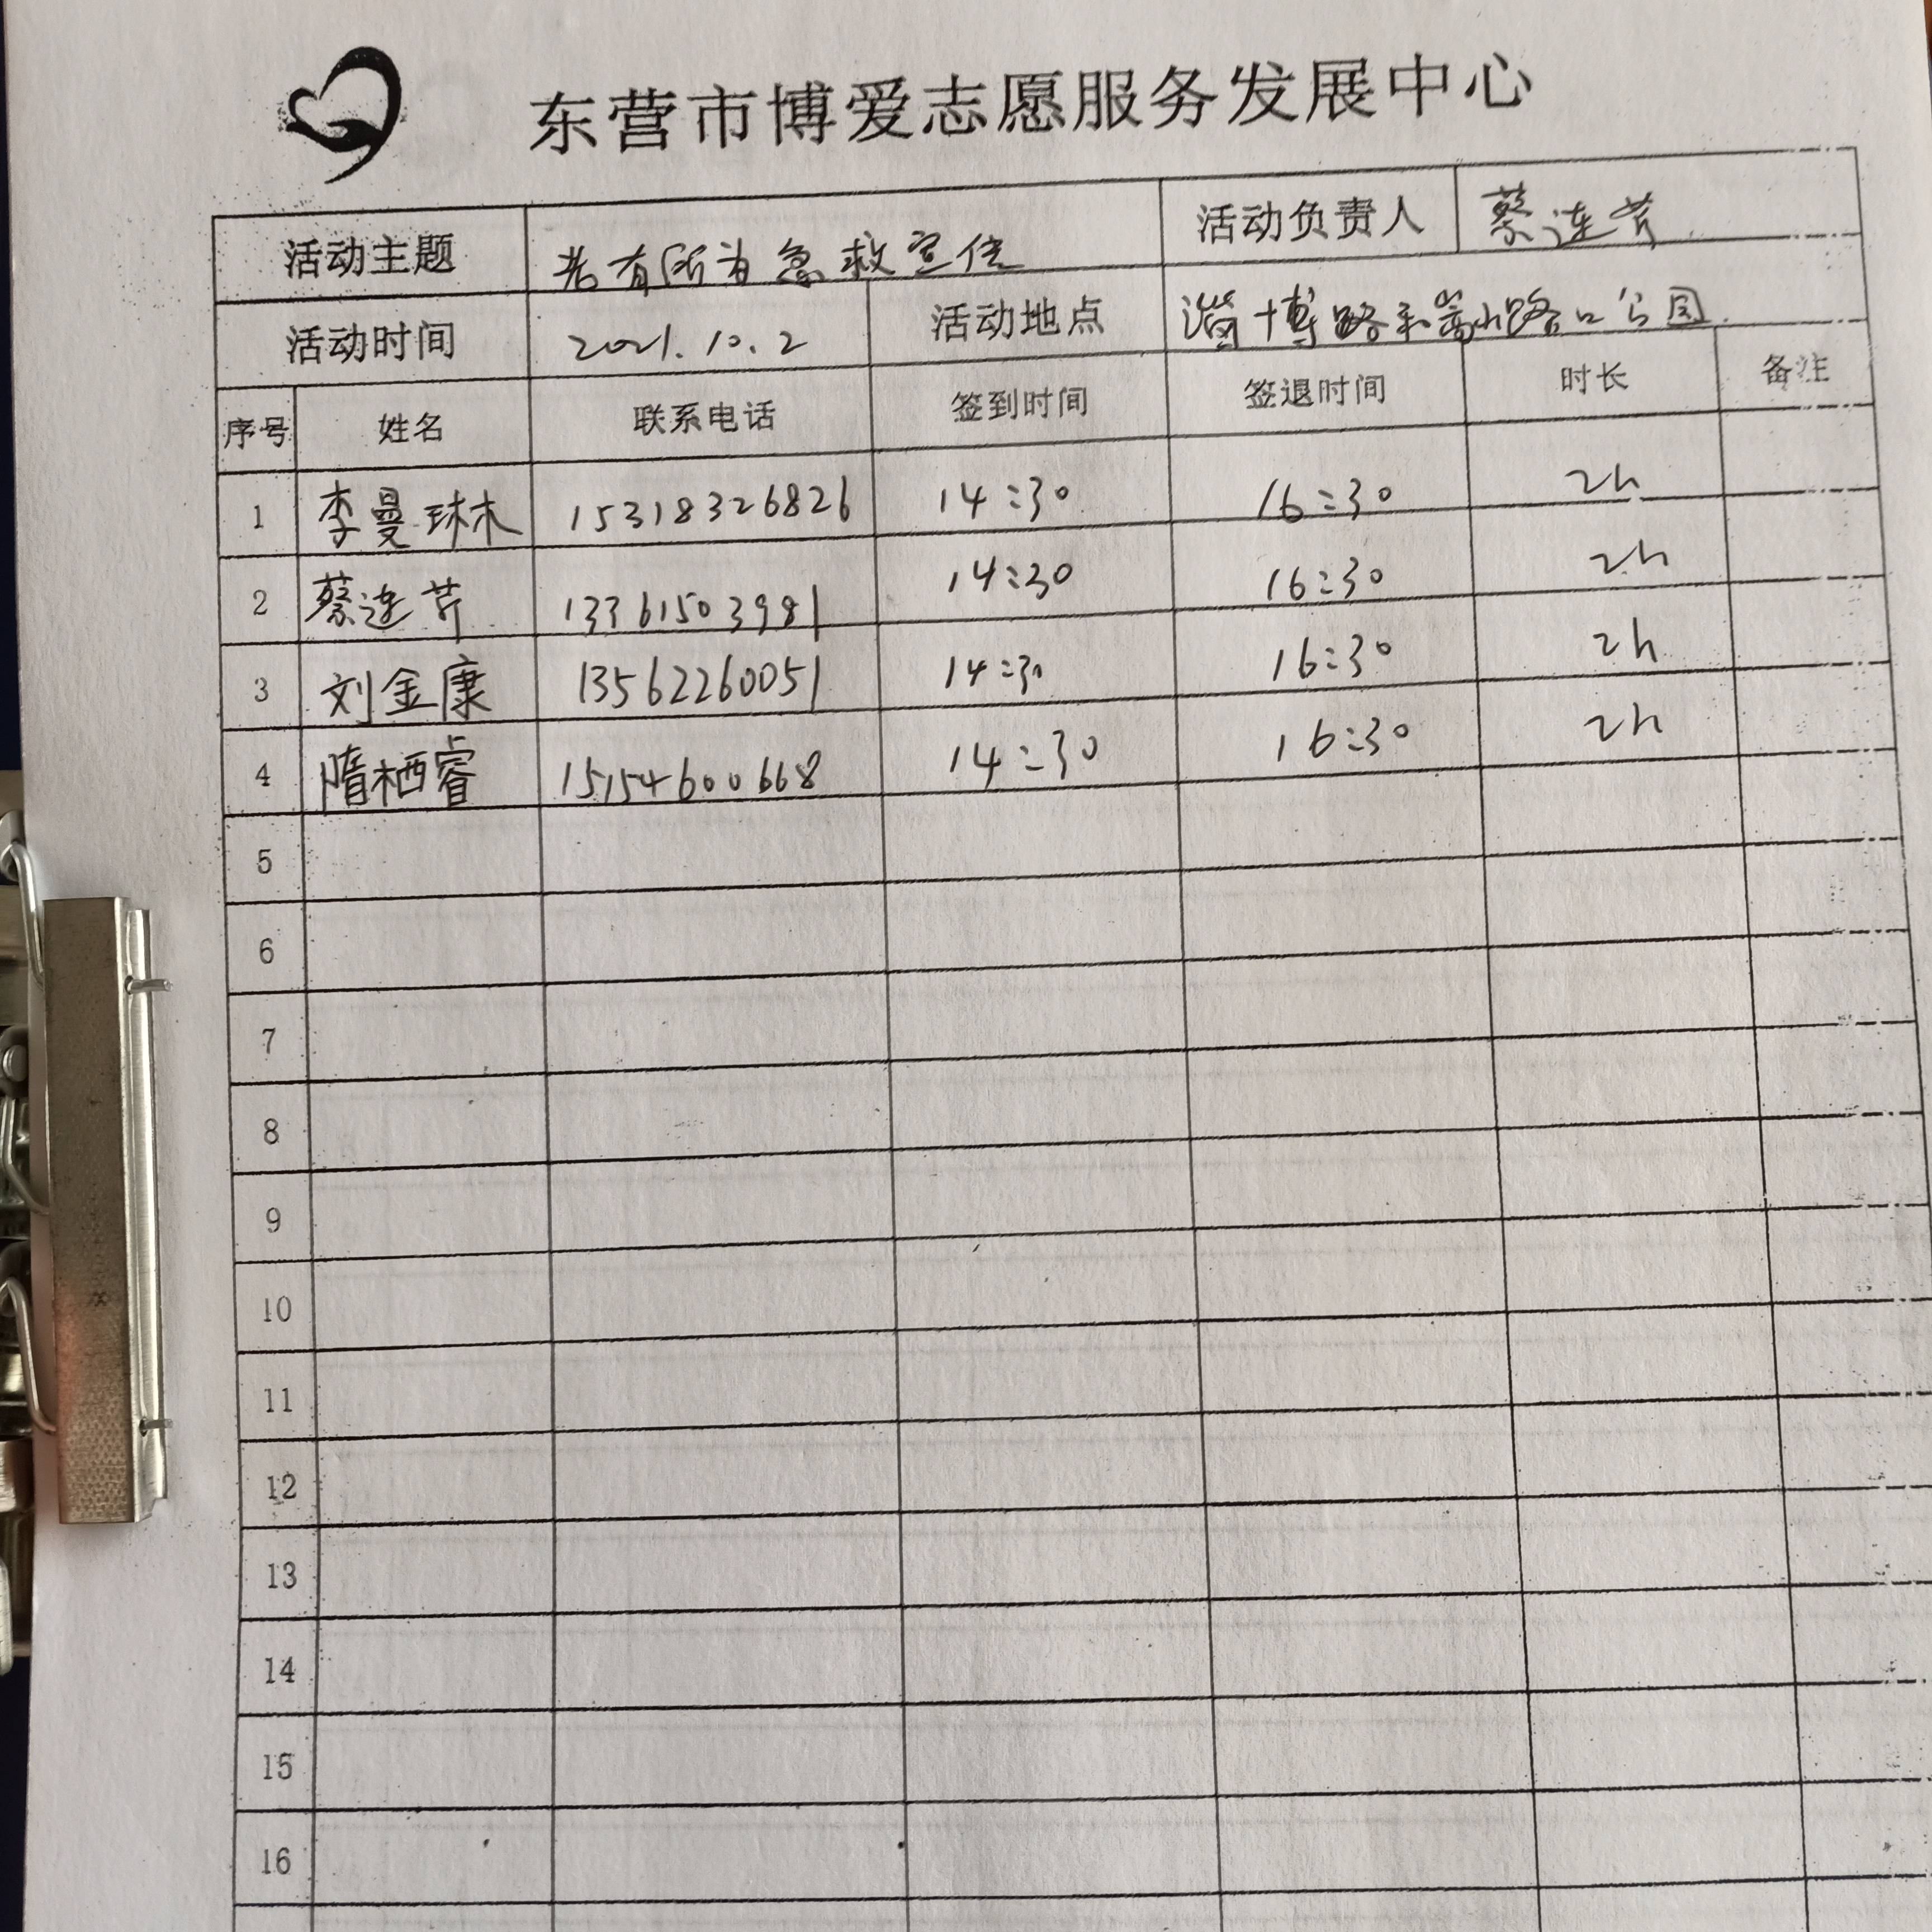 东营市博爱志愿服务发展中心
活动主题 老有所为急救宣传 活动负责人 蔡连芹
活动时间 2021.10.2 活动地点 淄博路和嵩山路口公园
序号 姓名 联系电话 签到时间 签退时间 时长 备注
1 李曼琳 15318326826 14:30 16:30 2h
2 蔡连芹 13361503981 14:30 16:30 2h
3 刘金康 13562260051 14:30 16:30 2h
4 隋栖睿 15154600668 14:30 16:30 2h
5
6
7
8
9
10
11
12
13
14
15
16